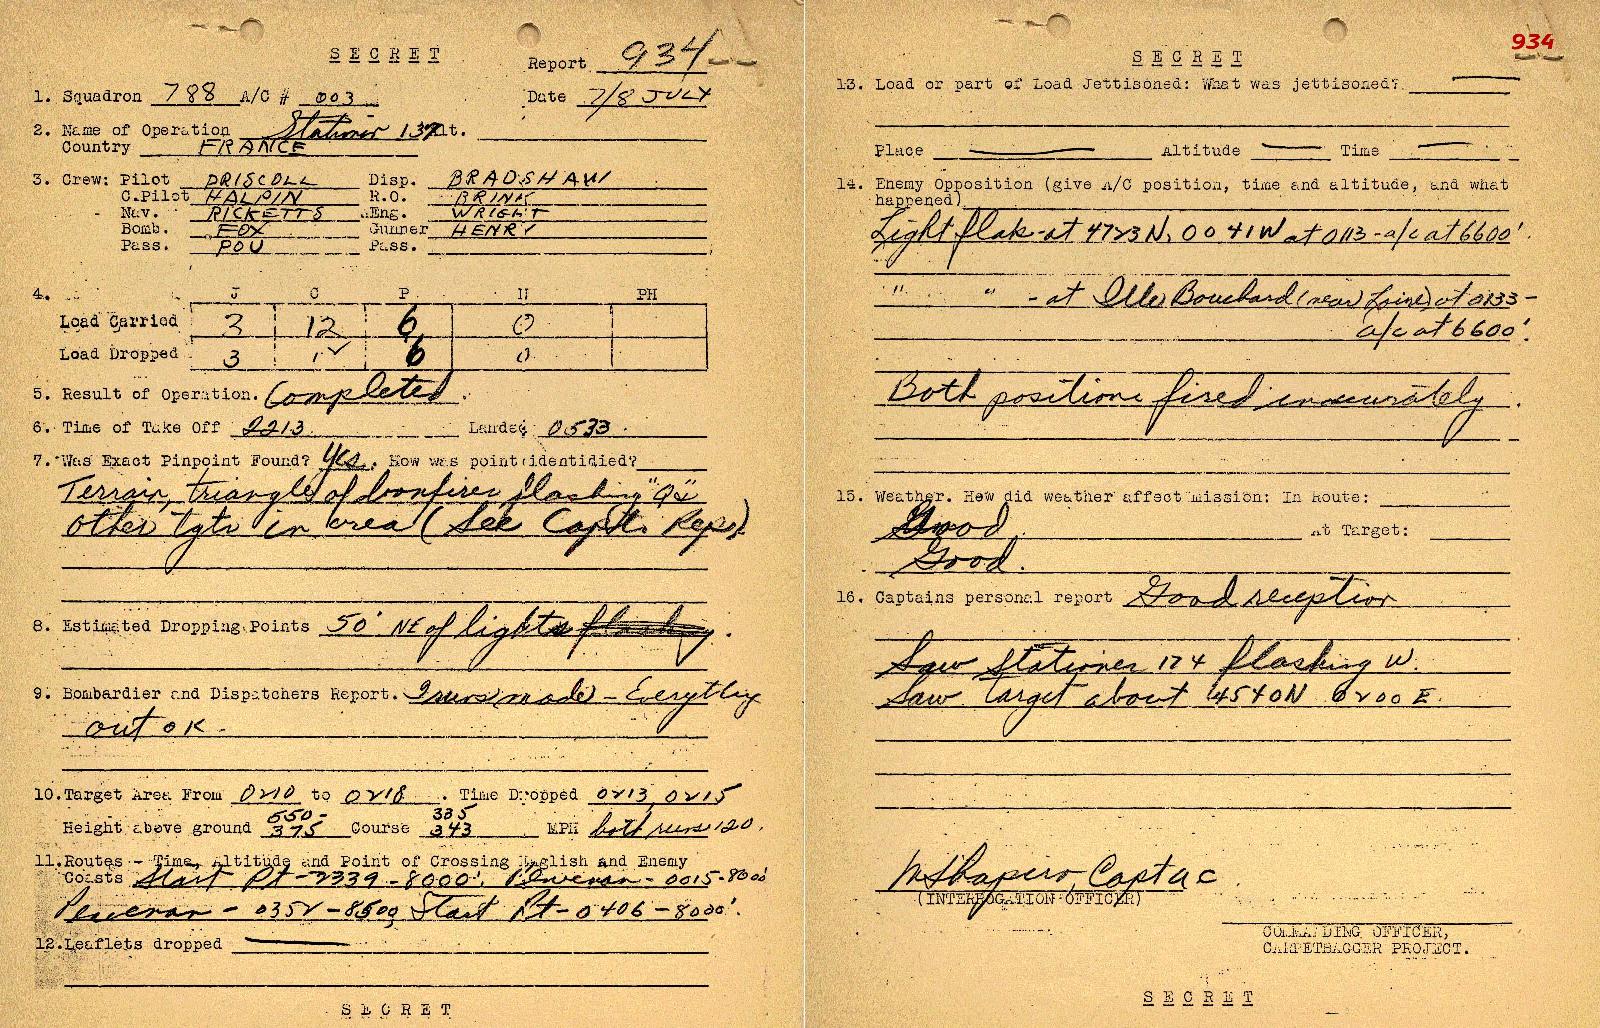 SECRET
Report 934
1. Squadron 788 A/C # 003
Date 7/8 JULY
2. Name of Operation Stationer 137 Alt.
Country FRANCE
3. Crew: Pilot DRISCOLL Disp. BRADSHAW
C.Pilot HALPIN R.O. BRINK
Nav. RICKETTS Eng. WRIGHT
Bomb. FOX Gunner HENRY
Pass. POU Pass.
4. J C P H PH
Load Carried 3 12 6 0
Load Dropped 3 12 6 0
5. Result of Operation. Completed.
6. Time of Take Off 2213 Landed 0533.
7. Was Exact Pinpoint Found? Yes. How was point identidied?
Terrain, triangle of bonfires flashing "Q"
other tgts in area (See Capt's Repo).
8. Estimated Dropping Points 50' NE of lights flashing.
9. Bombardier and Dispatchers Report. 2 runs made - Everything
out OK.
10. Target Area From 0210 to 0218. Time Dropped 0213, 0215
550- 335
Height above ground 375 Course 343 MPH both runs 120.
11. Routes - Time, Altitude and Point of Crossing English and Enemy
Coasts Start Pt - 2339 - 8000'. Penevan - 0015 - 8000'
Penevan - 0352 - 8500 Start Pt - 0406 - 8000'.
12. Leaflets dropped
SECRET
934
SECRET
13. Load or part of Load Jettisoned: What was jettisoned?
Place Altitude Time
14. Enemy Opposition (give A/C position, time and altitude, and what
happened)
Light flak - at 4723N, 0041W at 0113 - a/c at 6600'.
" " - at Ille Bouchard (near Loire) at 0133 -
a/c at 6600'.
Both positions fired inaccurately.
15. Weather. How did weather affect mission: In Route:
Good. At Target:
Good.
16. Captains personal report Good reception
Saw Stationer 124 flashing W.
Saw target about 4540N 0200E.
M Shapiro, Capt AC
(INTERROGATION OFFICER)
COMMANDING OFFICER,
CARPETBAGGER PROJECT.
SECRET